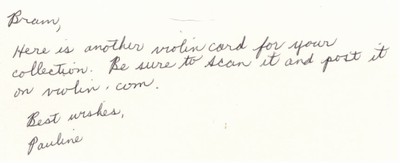 Bram,
Here is another violin card for your
collection. Be sure to scan it and post it
on violin.com.
Best wishes,
Pauline